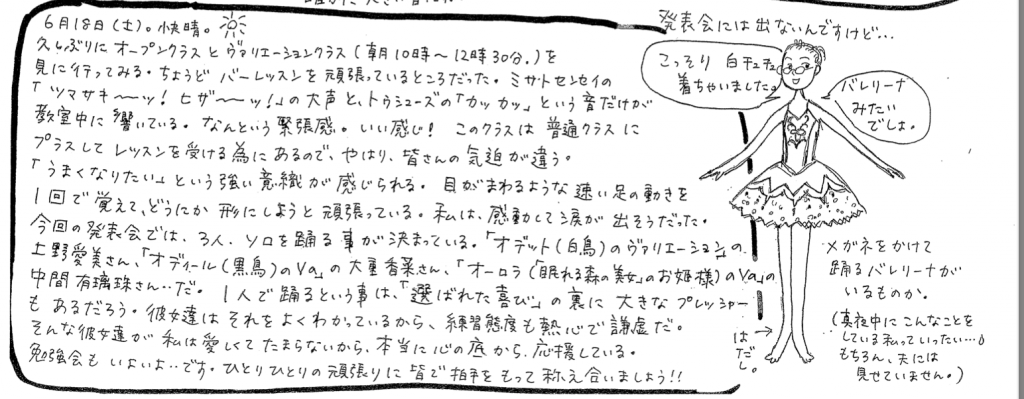 6月18日(土)。快晴。
久しぶりにオープンクラスとヴァリエーションクラス(朝10時〜12時30分。)を
見に行ってみる。ちょうどバーレッスンを頑張っているところだった。ミサトセンセイの
「ツマサキ〜〜ッ! ヒザ〜〜ッ!」の大声と、トゥシューズの「カッカッ」という音だけが
教室中に響いている。なんという緊張感。いい感じ! このクラスは普通クラスに
プラスしてレッスンを受ける為にあるので、やはり、皆さんの気迫が違う。
「うまくなりたい」という強い意織が感じられる。目がまわるような速い足の動きを
1回で覚えて、どうにか形にしようと頑張っている。私は、感動して涙が出そうだった。
今回の発表会では、3人、ソロを踊る事が決まっている。「オデット(白鳥)のヴァリエーション」の
上野愛美さん、「オディール(黒鳥)のVa」の大重香菜さん、「オーロラ(「眠れる森の美女」のお姫様)のVa」の
中間有璃珠さん‥だ。1人で踊るという事は、「選ばれた喜び」の裏に大きなプレッシャー
もあるだろう。彼女達はそれをよくわかっているから、練習態度も熱心で謙虚だ。
そんな彼女達が私は愛しくてたまらないから、本当に心の底から、応援している。
勉強会もいよいよ‥です。ひとりひとりの頑張りに皆で拍手をもって称え合いましよう!!
発表会には出ないんですけど…
こっそり白チュチュ
着ちゃいました。
バレリーナ
みたい
でしょ。
メガネをかけて
踊るバレリーナが
いるものか。
(真夜中にこんなことを
している私っていったい…。
もちろん、夫には
見せていません。)
はだし。